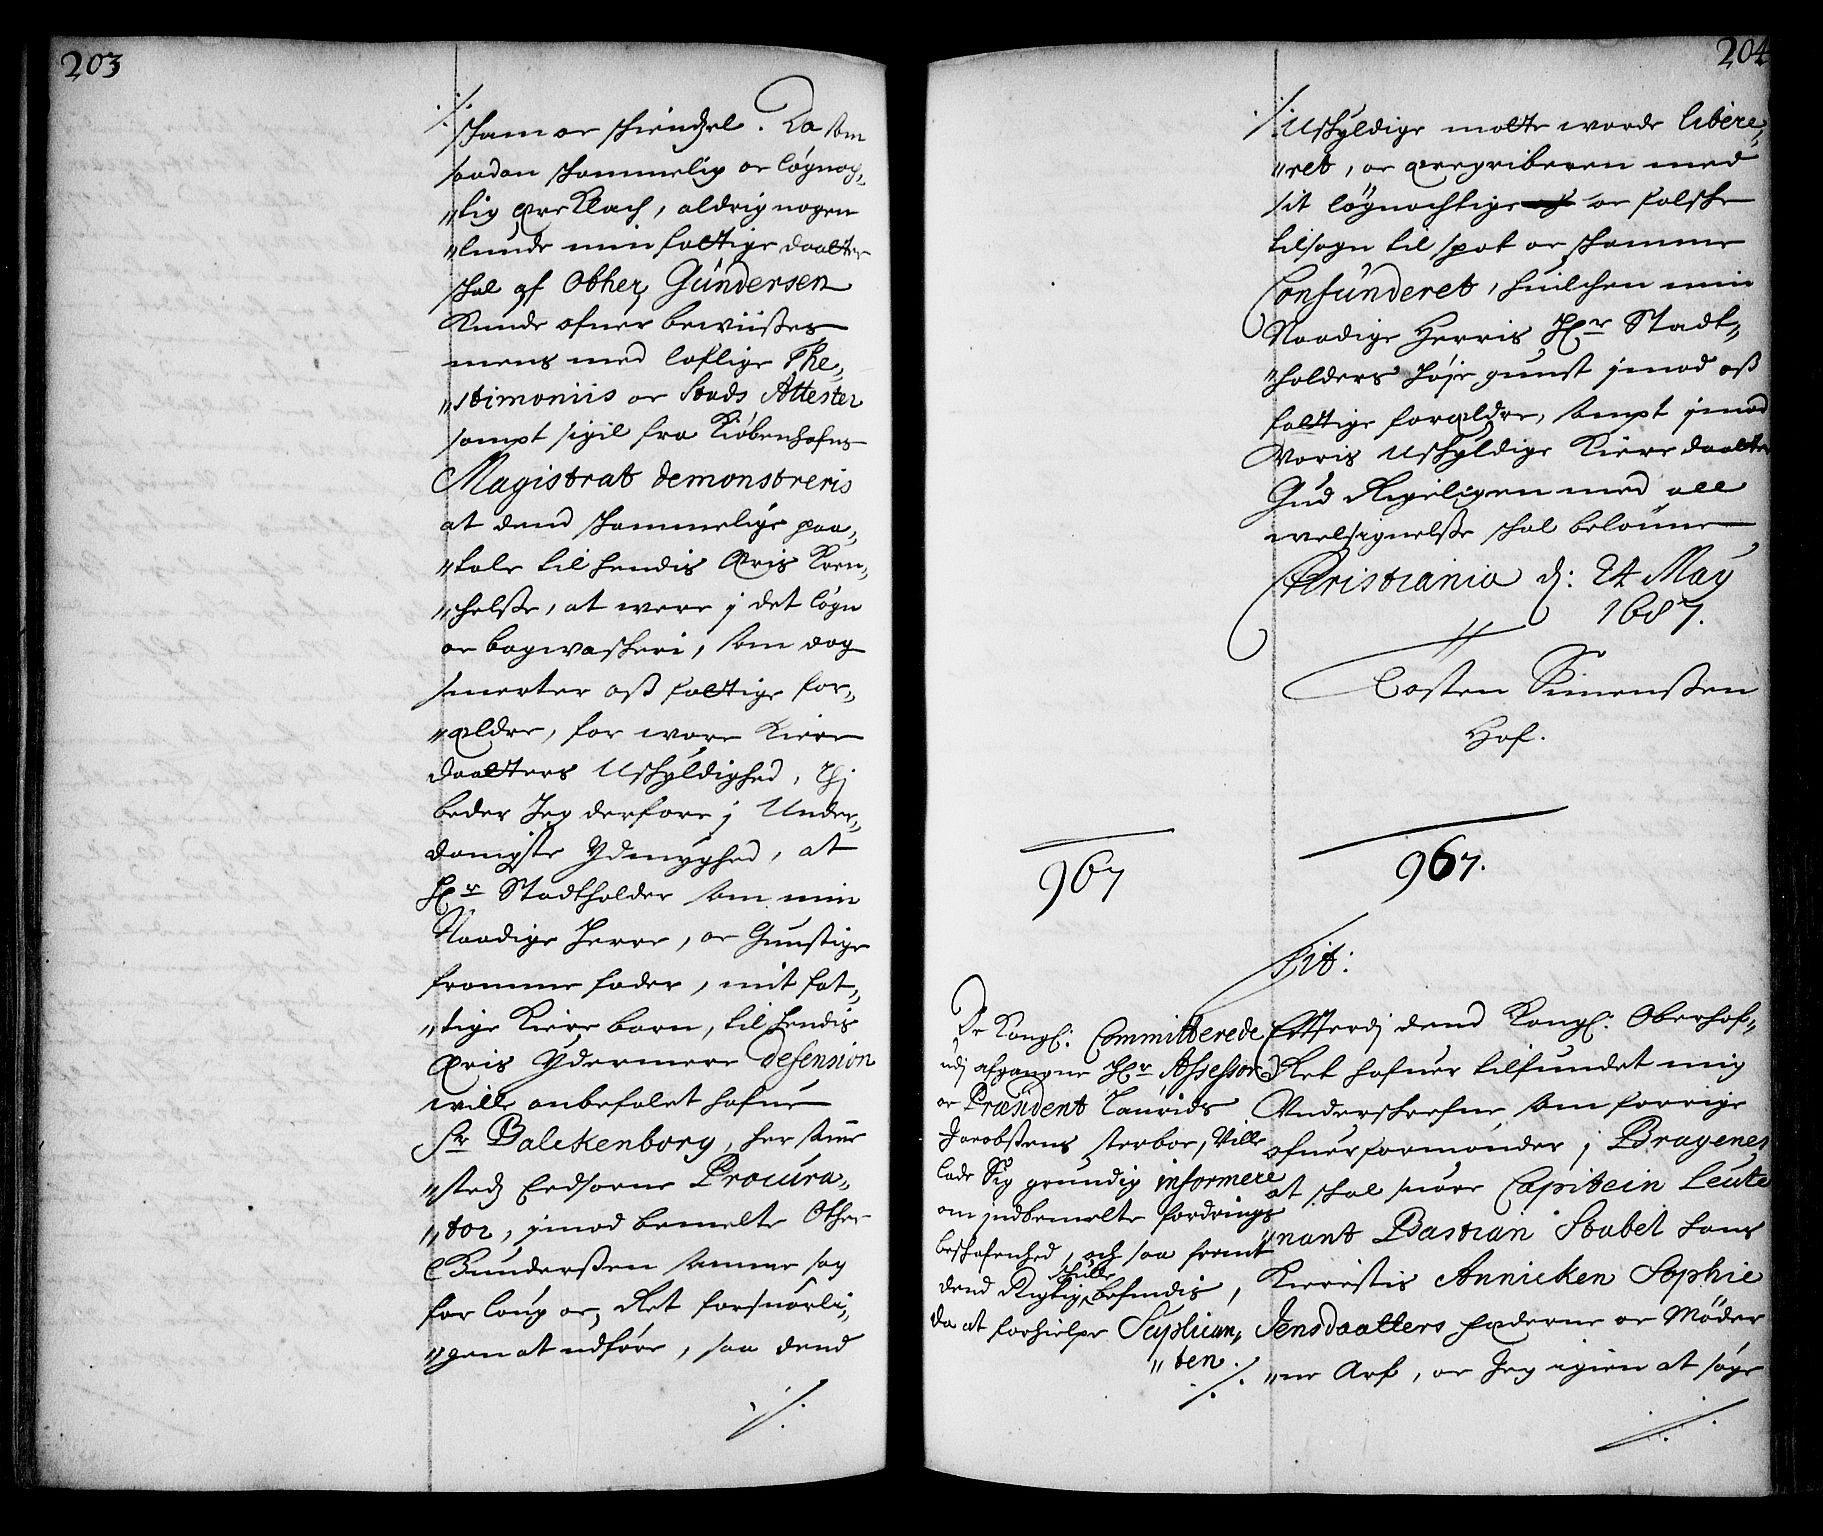 203
./.
skam oc skiendzel. Da som
saadan skammelig oc løgnag„
„tig ære Klach, aldrig nogen
„lunde min fattige daatter
skal af Other Gundersen
Kunde ofuer bewiisses
mens med loflige The„
„stimoniis oc Stads Attester
sampt sigil fra Kiøbenhafns
Magistrat demonstreris
at dend skammelige paa„
„tale til hendis Æris Kren„
„chelsse, at were j det løgn
oc bagwaskeri, som dog
smerter oss fattige for„
„ældre, for wore Kiere
daatters Uskyldighed, Thj
beder Jeg derfore j Under„
danigste Ydmyghed, at
Hr Stadtholder som min
Naadige Herre, oc Gunstige
fromme fader, mit fat„
„tige Kiere barn, til hendis
Æris Ydermere defension
wille anbefalet hafue
Sr Balckenborg, her sam„
„steds Eedsorne Procura„
„tor, jmod bemelte Other
Gunderssen samme sag
for loug oc Ret forsuorli„
„gen at udføre, saa dend
./.
204
./.
Uskyldige motte worde libere„
„ret, oc æregriberen med
sit løgnachtige oc falske
tilsagn til spot oc skamme
Confunderet, huilchen min
Naadige Herris Hr Stadt„
„holders høje gunst jmod oss
fattige forældre, sampt jmod
Woris Uskyldige Kiere daatter
Gud Rigeligen med all
welsignelsse skal belønne
Christiania d: 24 May
1687.
Tosten Simenssen
Hof.
967
967.
Tit:
De Kongl: Committerede
udj afgangne Hr Assessor
oc Præsident Laurids
Jacobssens sterboe, Ville
lade Sig grundig informere
om jndbemelte fordrings
beskafenhed, och saa fremt
dend Rigtig skulle befindis,
da at forhielpe Suplican„
„ten.
./.
Efftterdj dend Kongl: Oberhof„
Ret hafuer tilfundet mig
Underskrefne som forrige
ofuerformønder j Bragenes
at skal suare Capitein Leute
„nant Bastian Stabel hans
Kierestis Annicken Sophie
Jensdaatters fæderne oc Møder
„ne Arf, oc Jeg igien at søge
./.